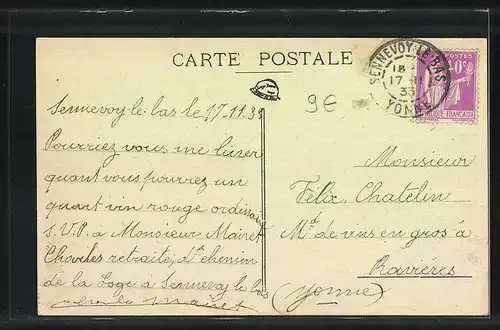 CARTE POSTALE
SENNEVOY-LE-BAS
17
33
YONNE
POSTES
40c
Sennevoy le bas le 17.11.33
Pourriez vous me livrer
quant vous pourrez un
quart vin rouge ordinaire
S.V.P. a Monsieur Mairet
Charles retraité, dt chemin
de la Loge a Sennevoy le bas
Mairet
9€
Monsieur
Félix Chatelin
Md de vins en gros à
Ravières
(Yonne)